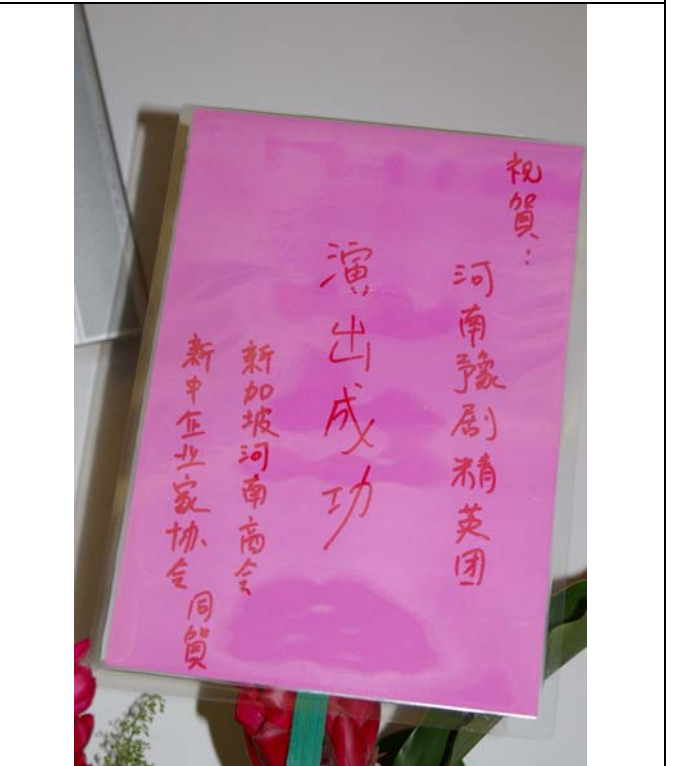 祝賀：
河南豫剧精英团
演出成功
新加坡河南商会
新中企业家协会
同賀